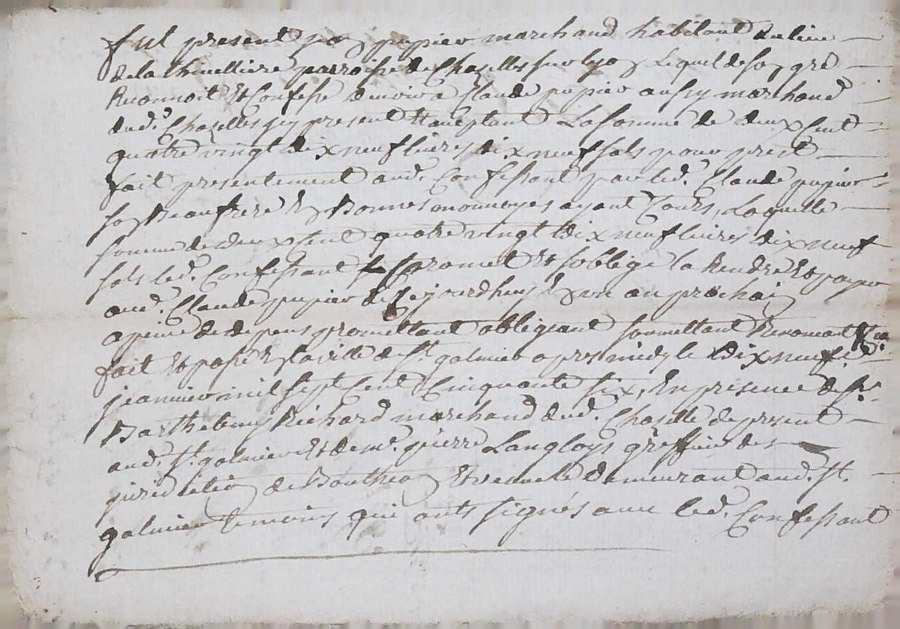 fut present pupier marchand habitant du lieu
de la thuelliere parroisse de Chaselles sur Lequel de son gré
Reconnoit Et Confesse devoir a Claude pupier aussy marchand
dud. Chaselles present Et acceptant La Somme de deux Cent
quatre vingt dix neuf livres dix neuf sols pour prest
fait presentement aud. Confessant par led. Claude pupier
son Beaufrere En Bonnes monnoyes ayant Cours, Laquelle
somme de deux Cent quatre vingt dix neuf livres dix neuf
sols led. Confessant promet Et s'oblige la Rendre Et payer
aud. Claude pupier de ce jourdhuy En un an prochain
a peine de depens promettant obligeant soumettant Renonçant
fait Et passé En la ville de St. galmier apres midy le dix neuf
janvier mil sept Cent Cinquante six, En presence de Sr.
Barthelemy Richard marchand dud. Chaselle de present
aud. St. galmier Et de me. pierre Langloys greffier des
juridiction de Bouthéon Et veauche demeurant aud. St.
galmier temoins qui onts signés avec led. Confessant